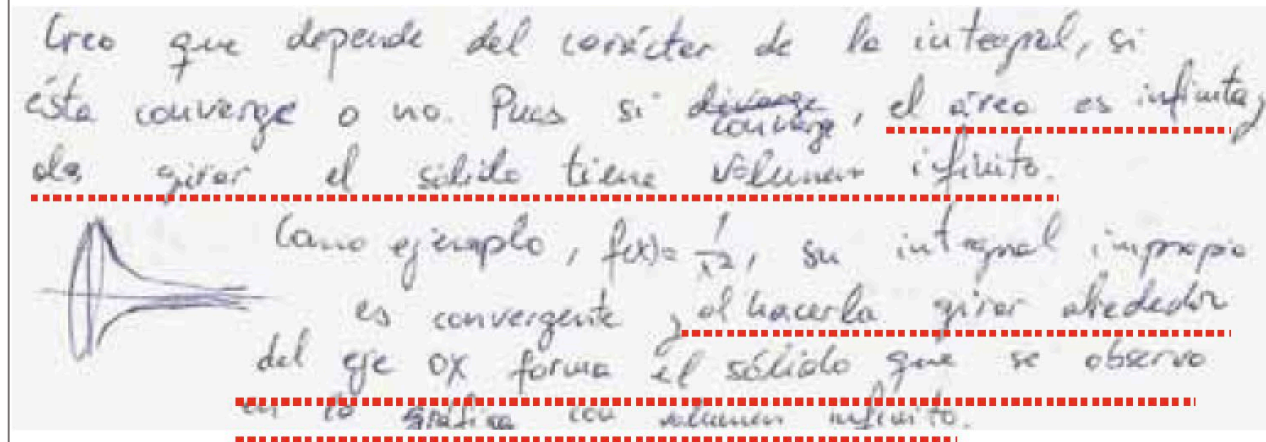 Creo que depende del carácter de la integral, si
ésta converge o no. Pues si diverge converge, el área es infinita y
al girar el sólido tiene volumen infinito.
Como ejemplo, f(x)= 1/x², su integral impropia
es convergente y al hacerla girar alrededor
del eje OX forma el sólido que se observa
en la gráfica con volumen infinito.